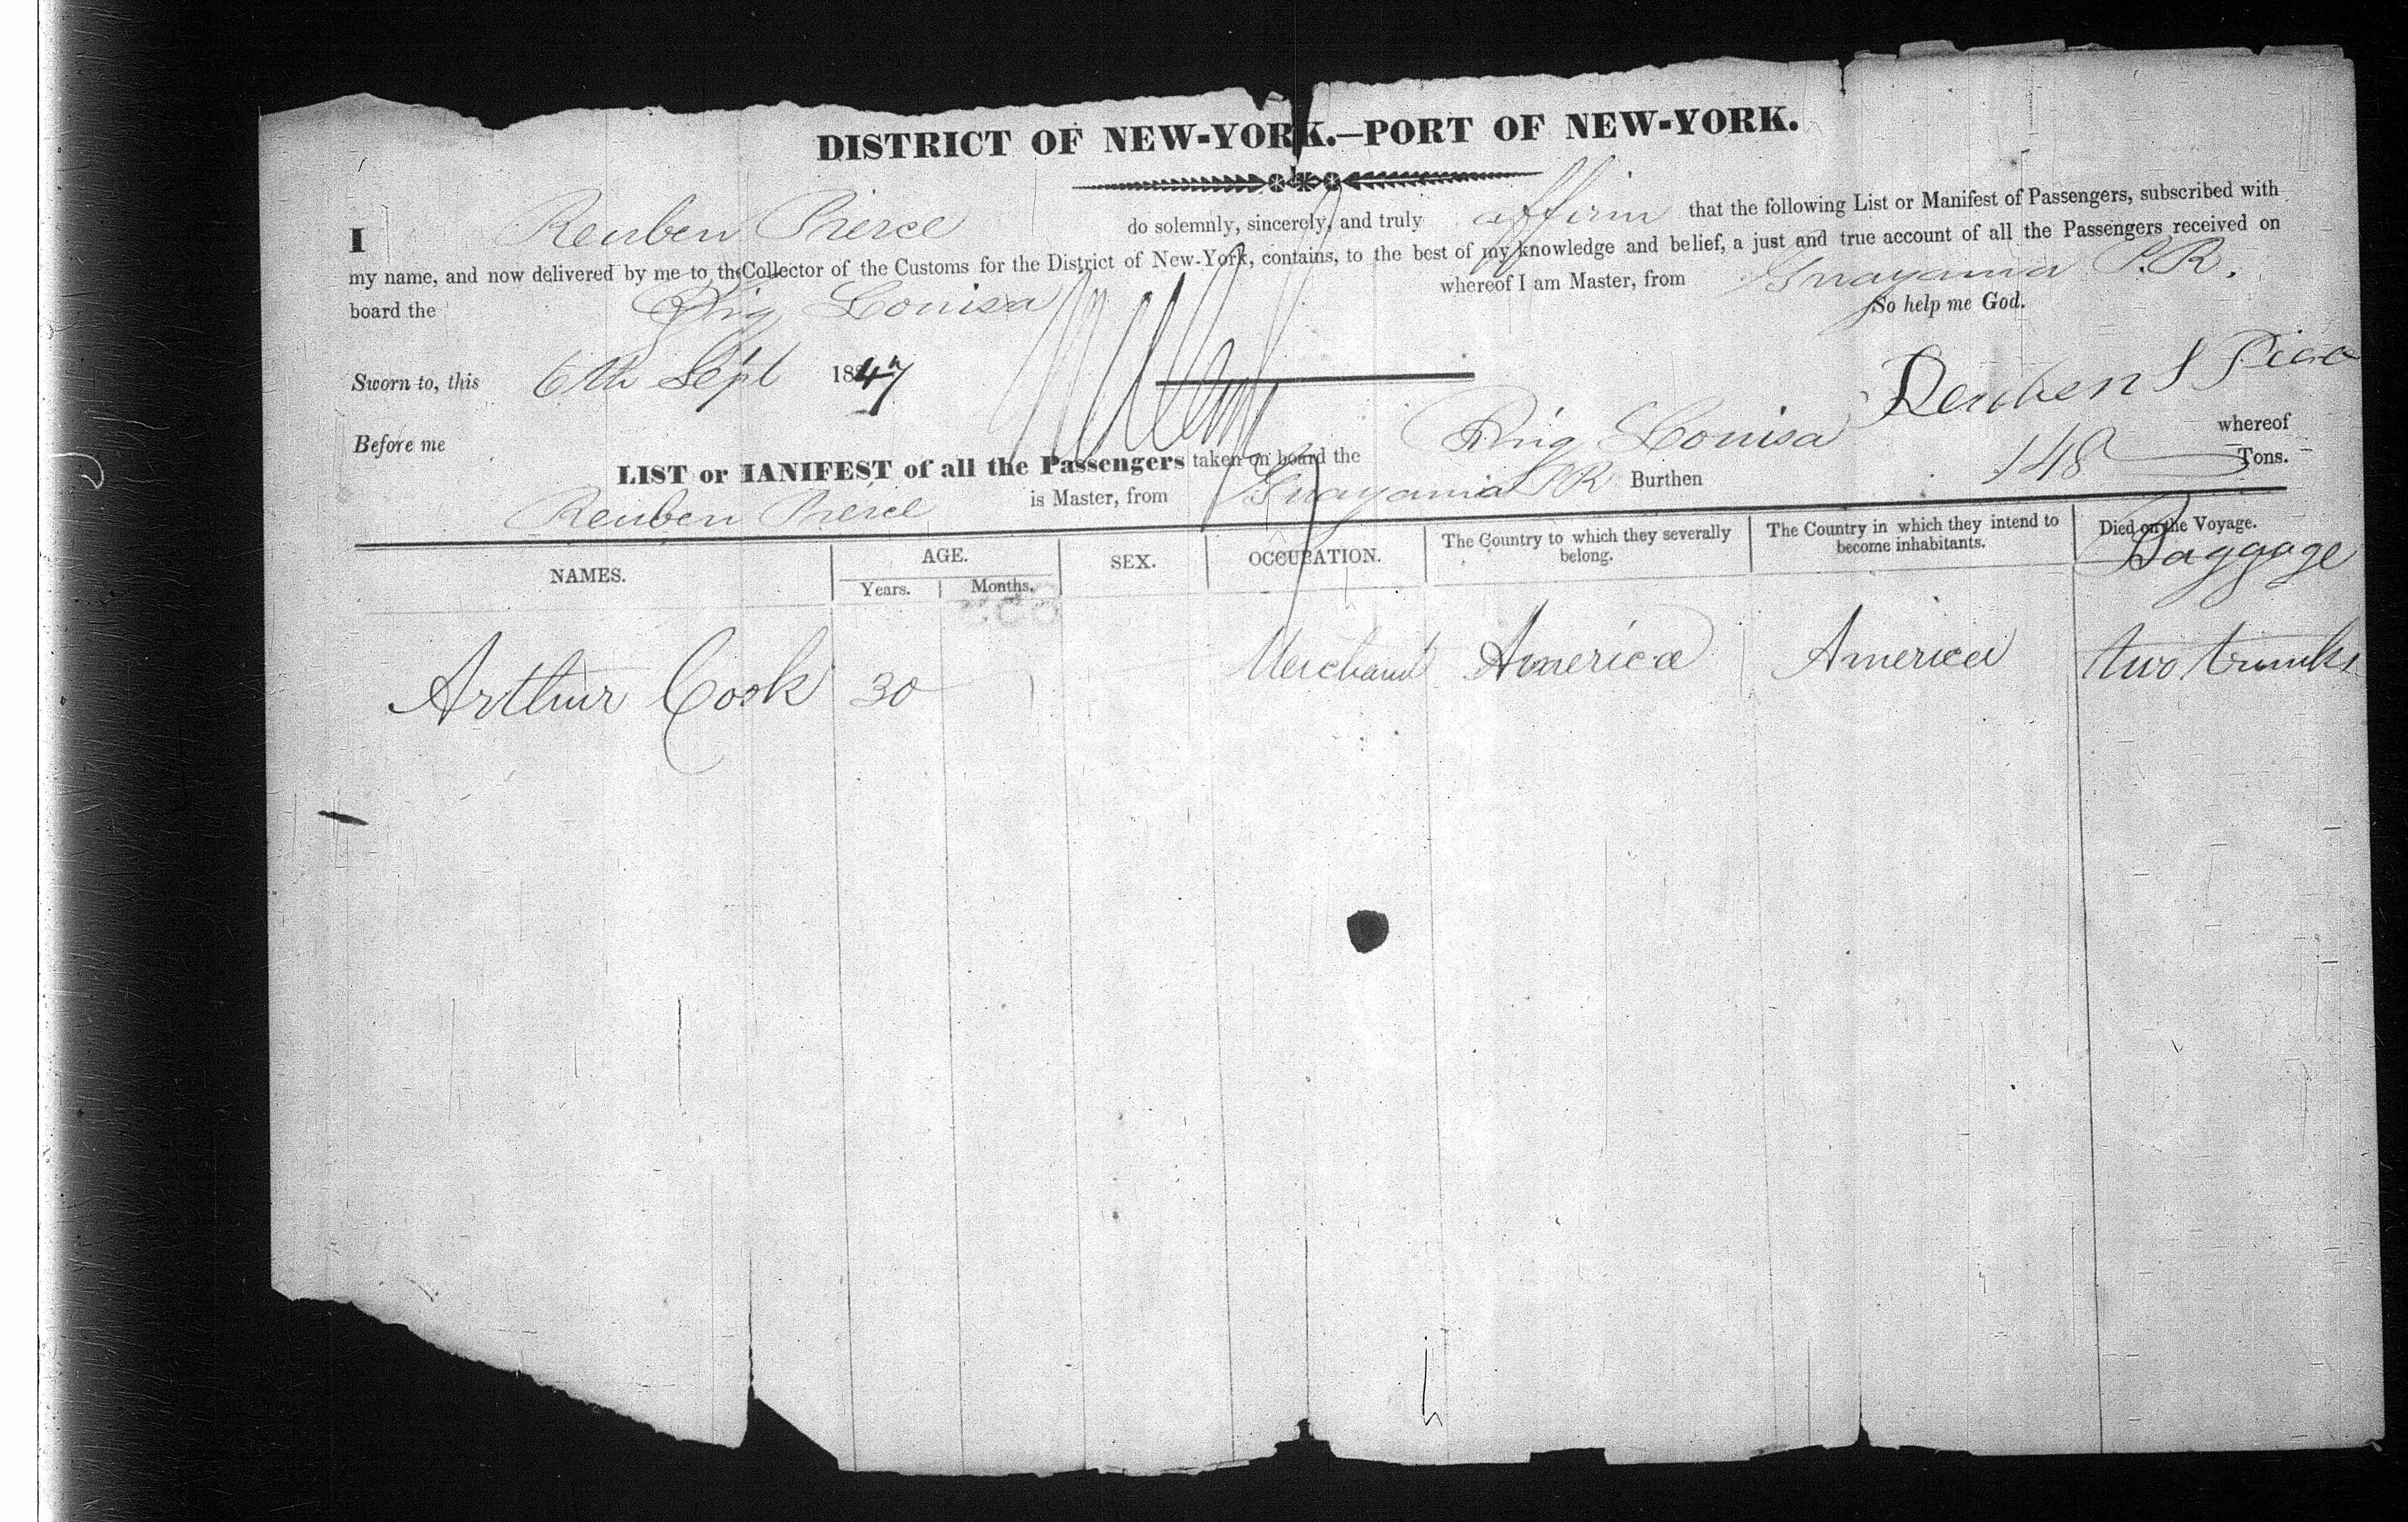 DISTRICT OF NEW-YORK.—PORT OF NEW-YORK.
I Reuben Pierce do solemnly, sincerely, and truly affirm that the following List or Manifest of Passengers, subscribed with
my name, and now delivered by me to the Collector of the Customs for the District of New-York, contains, to the best of my knowledge and belief, a just and true account of all the Passengers received on
board the Brig Louisa whereof I am Master, from Guayama P.R.
So help me God.
Sworn to, this 6th Sept 1847
Reuben S
Before me
LIST or MANIFEST of all the Passengers taken on board the Brig Louisa whereof
Reuben Pierce is Master, from Guayama PR Burthen 148 Tons.
NAMES. AGE. SEX. OCCUPATION. The Country to which they severally belong. The Country in which they intend to become inhabitants. Died on the Voyage.
Years. Months. Baggage
Arthur Cook 30 Merchant America America two trunks